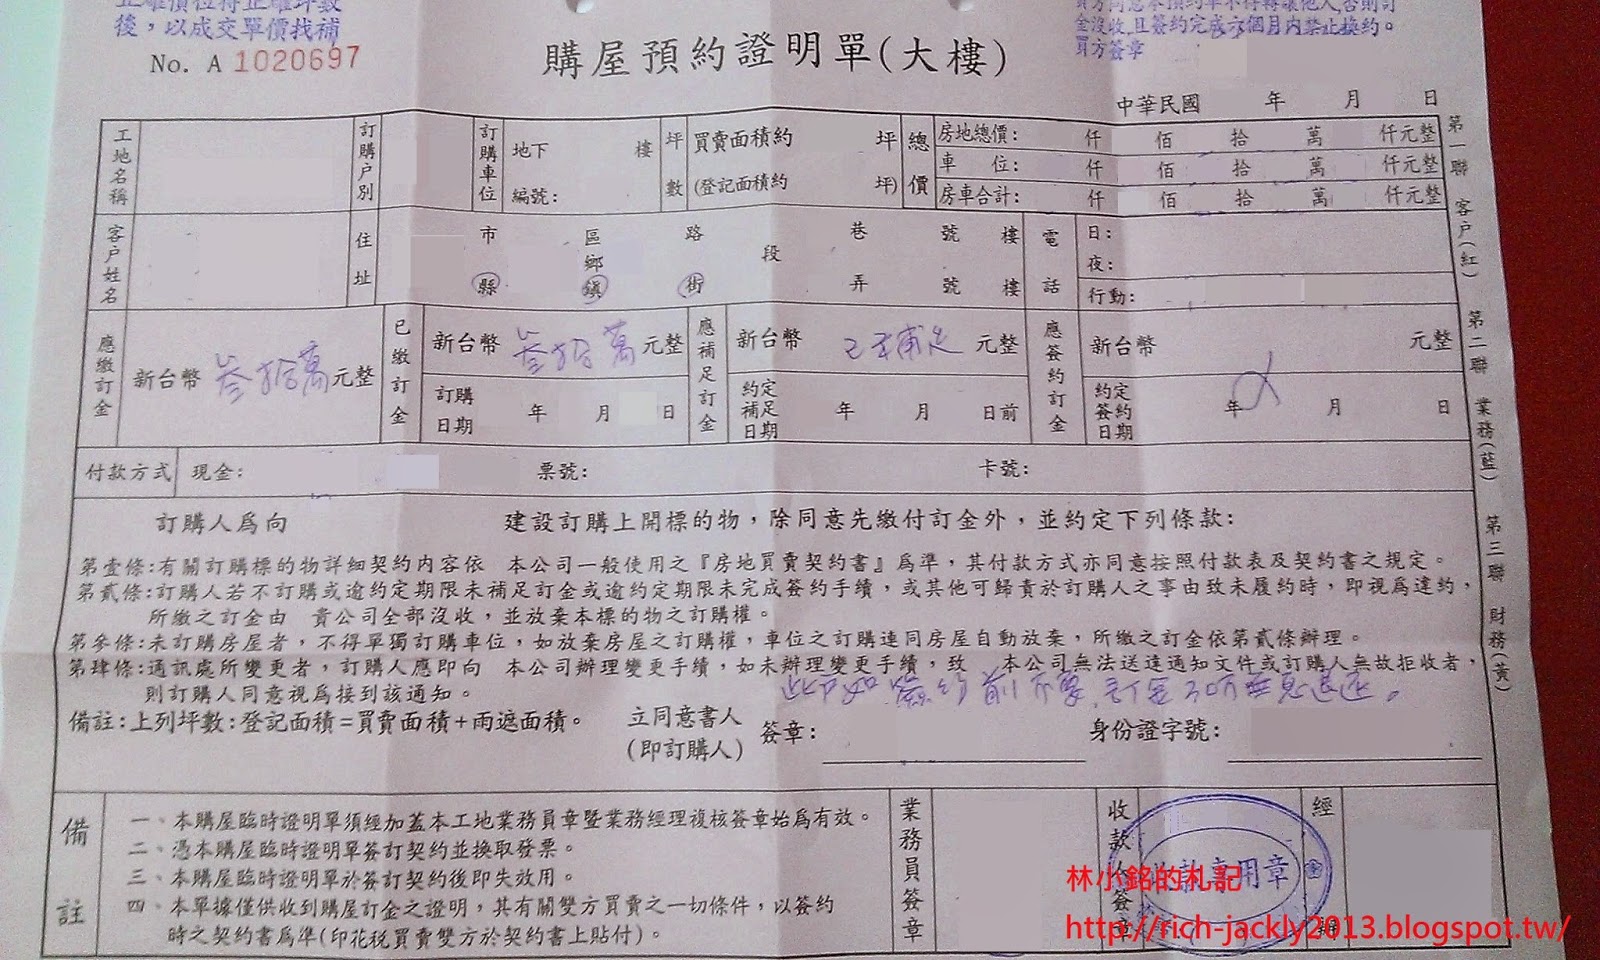 後，以成交單價找補
No. A 1020697
購屋預約證明單(大樓)
金沒收，且簽約完成六個月內禁止換約。
買方簽章
中華民國 年 月 日
工地名稱
訂購戶別
訂購車位
地下 樓
編號：
坪數
買賣面積約 坪
(登記面積約 坪)
總價
房地總價： 仟 佰 拾 萬 仟元整
車 位： 仟 佰 拾 萬 仟元整
房車合計： 仟 佰 拾 萬 仟元整
客戶姓名
住址
市 區 路 巷 號 樓
鄉 段
縣 鎮 街 弄 號 樓
電話
日：
夜：
行動：
應繳訂金
新台幣 叁拾萬 元整
已繳訂金
新台幣 叁拾萬 元整
訂購日期 年 月 日
應補足訂金
新台幣 已補足 元整
約定補足日期 年 月 日前
應簽約訂金
新台幣 元整
約定簽約日期 年 月 日
付款方式 現金： 票號： 卡號：
訂購人為向 建設訂購上開標的物，除同意先繳付訂金外，並約定下列條款：
第壹條：有關訂購標的物詳細契約內容依 本公司一般使用之『房地買賣契約書』為準，其付款方式亦同意按照付款表及契約書之規定。
第貳條：訂購人若不訂購或逾約定期限未補足訂金或逾約定期限未完成簽約手續，或其他可歸責於訂購人之事由致未履約時，即視為違約，
所繳之訂金由 貴公司全部沒收，並放棄本標的物之訂購權。
第參條：未訂購房屋者，不得單獨訂購車位，如放棄房屋之訂購權，車位之訂購連同房屋自動放棄，所繳之訂金依第貳條辦理。
第肆條：通訊處所變更者，訂購人應即向 本公司辦理變更手續，如未辦理變更手續，致 本公司無法送達通知文件或訂購人無故拒收者，
則訂購人同意視為接到該通知。
此戶如簽約前不買，訂金可無息退還。
備註：上列坪數：登記面積=買賣面積+雨遮面積。
立同意書人
(即訂購人)
簽章：
身份證字號：
備註
一、本購屋臨時證明單須經加蓋本工地業務員章暨業務經理複核簽章始為有效。
二、憑本購屋臨時證明單簽訂契約並換取發票。
三、本購屋臨時證明單於簽訂契約後即失效用。
四、本單據僅供收到購屋訂金之證明，其有關雙方買賣之一切條件，以簽約
時之契約書為準(印花稅買賣雙方於契約書上貼付)。
業務員簽章
收款
簽章
專用章
經
第一聯 客戶(紅)
第二聯 業務(藍)
第三聯 財務(黃)
林小銘的札記
http://rich-jackly2013.blogspot.tw/